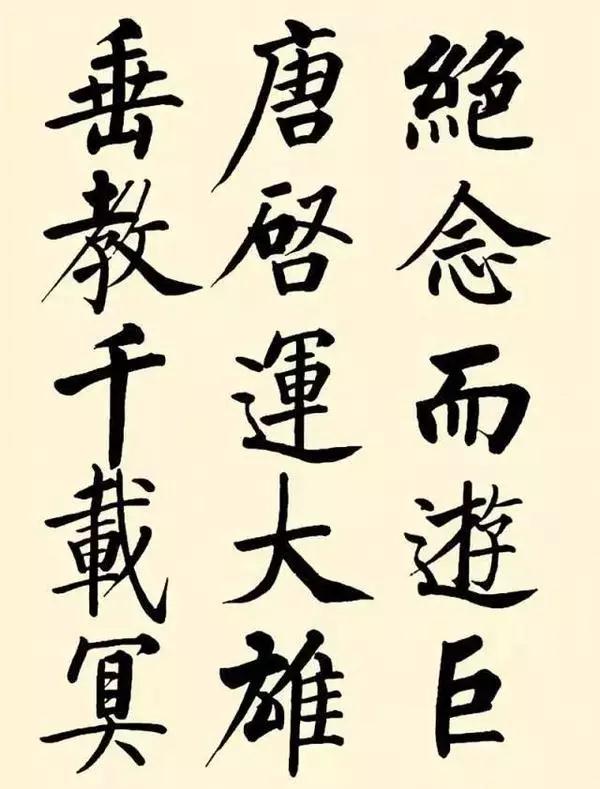 絕念而遊巨
唐啓運大雄
垂教千載冥